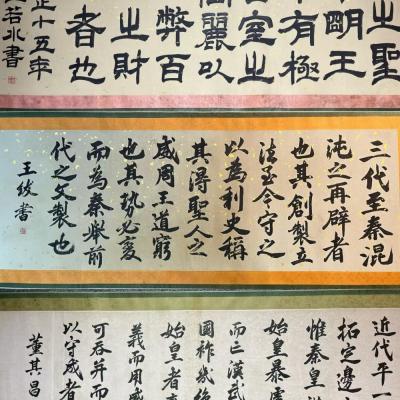 之聖
朙王
有極
室之
麗以
弊百
之財
者也
正十五年
若水書
三代至秦混
沌之再辟者
也其創製立
法至今守之
以為利史稱
其得聖人之
威周王道窮
也其勢必變
而為秦舉前
代之文製也
王紱書
近代平一
拓定邊
惟秦皇
始皇暴虐
而亡漢武
國祚幾
始皇者
義而用威
可吞并而
以守成者
董其昌